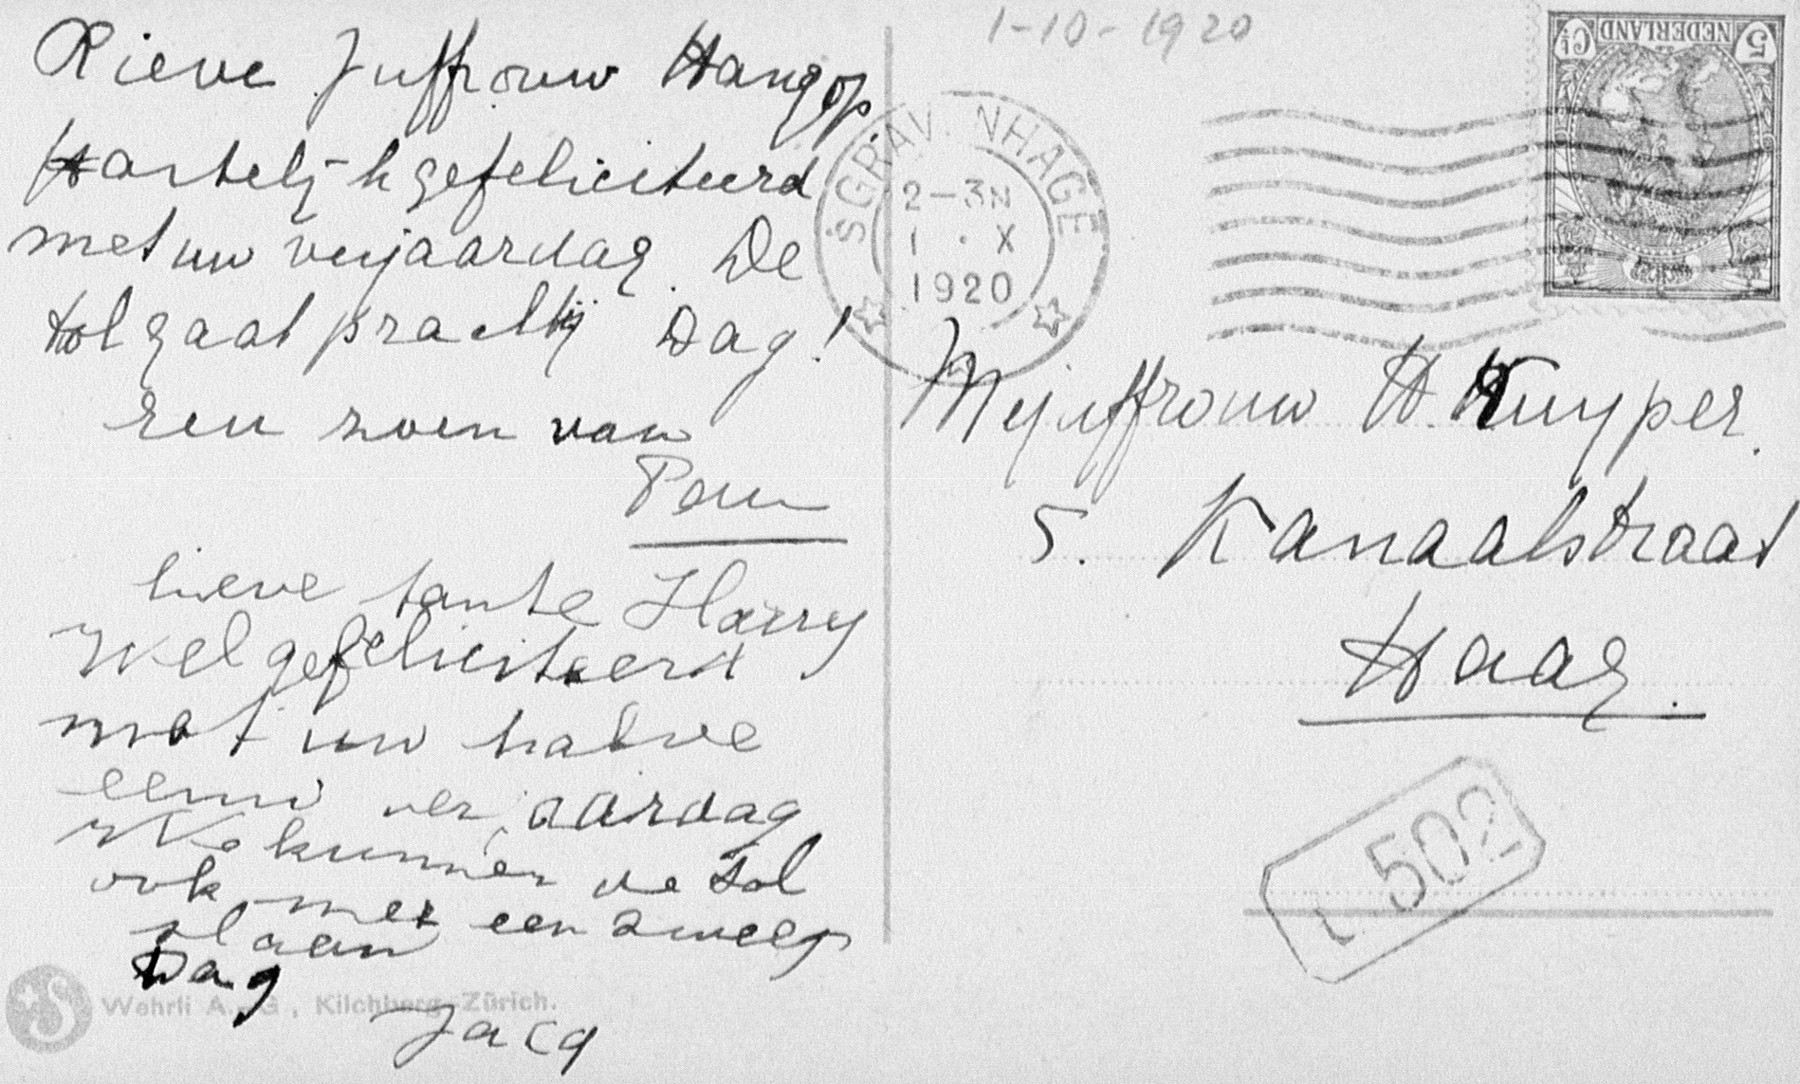 1-10-1920
NEDERLAND
5 Ct
'SGRAVENHAGE
2-3N
1 · X
1920
Lieve Juffrouw Hangop
Hartelijk gefeliciteerd
met uw verjaardag. De
tol gaat prachtig Dag!
een zoen van
lieve tante Harry
Wel gefeliciteerd
met uw halve
verjaardag
We kunnen de tol
ook met een zweep
slaan
Dag
Jacq
Mejuffrouw H. Kuyper.
5. Kanaalstraat
Haag.
502
Wehrli A.-G., Kilchberg-Zürich.